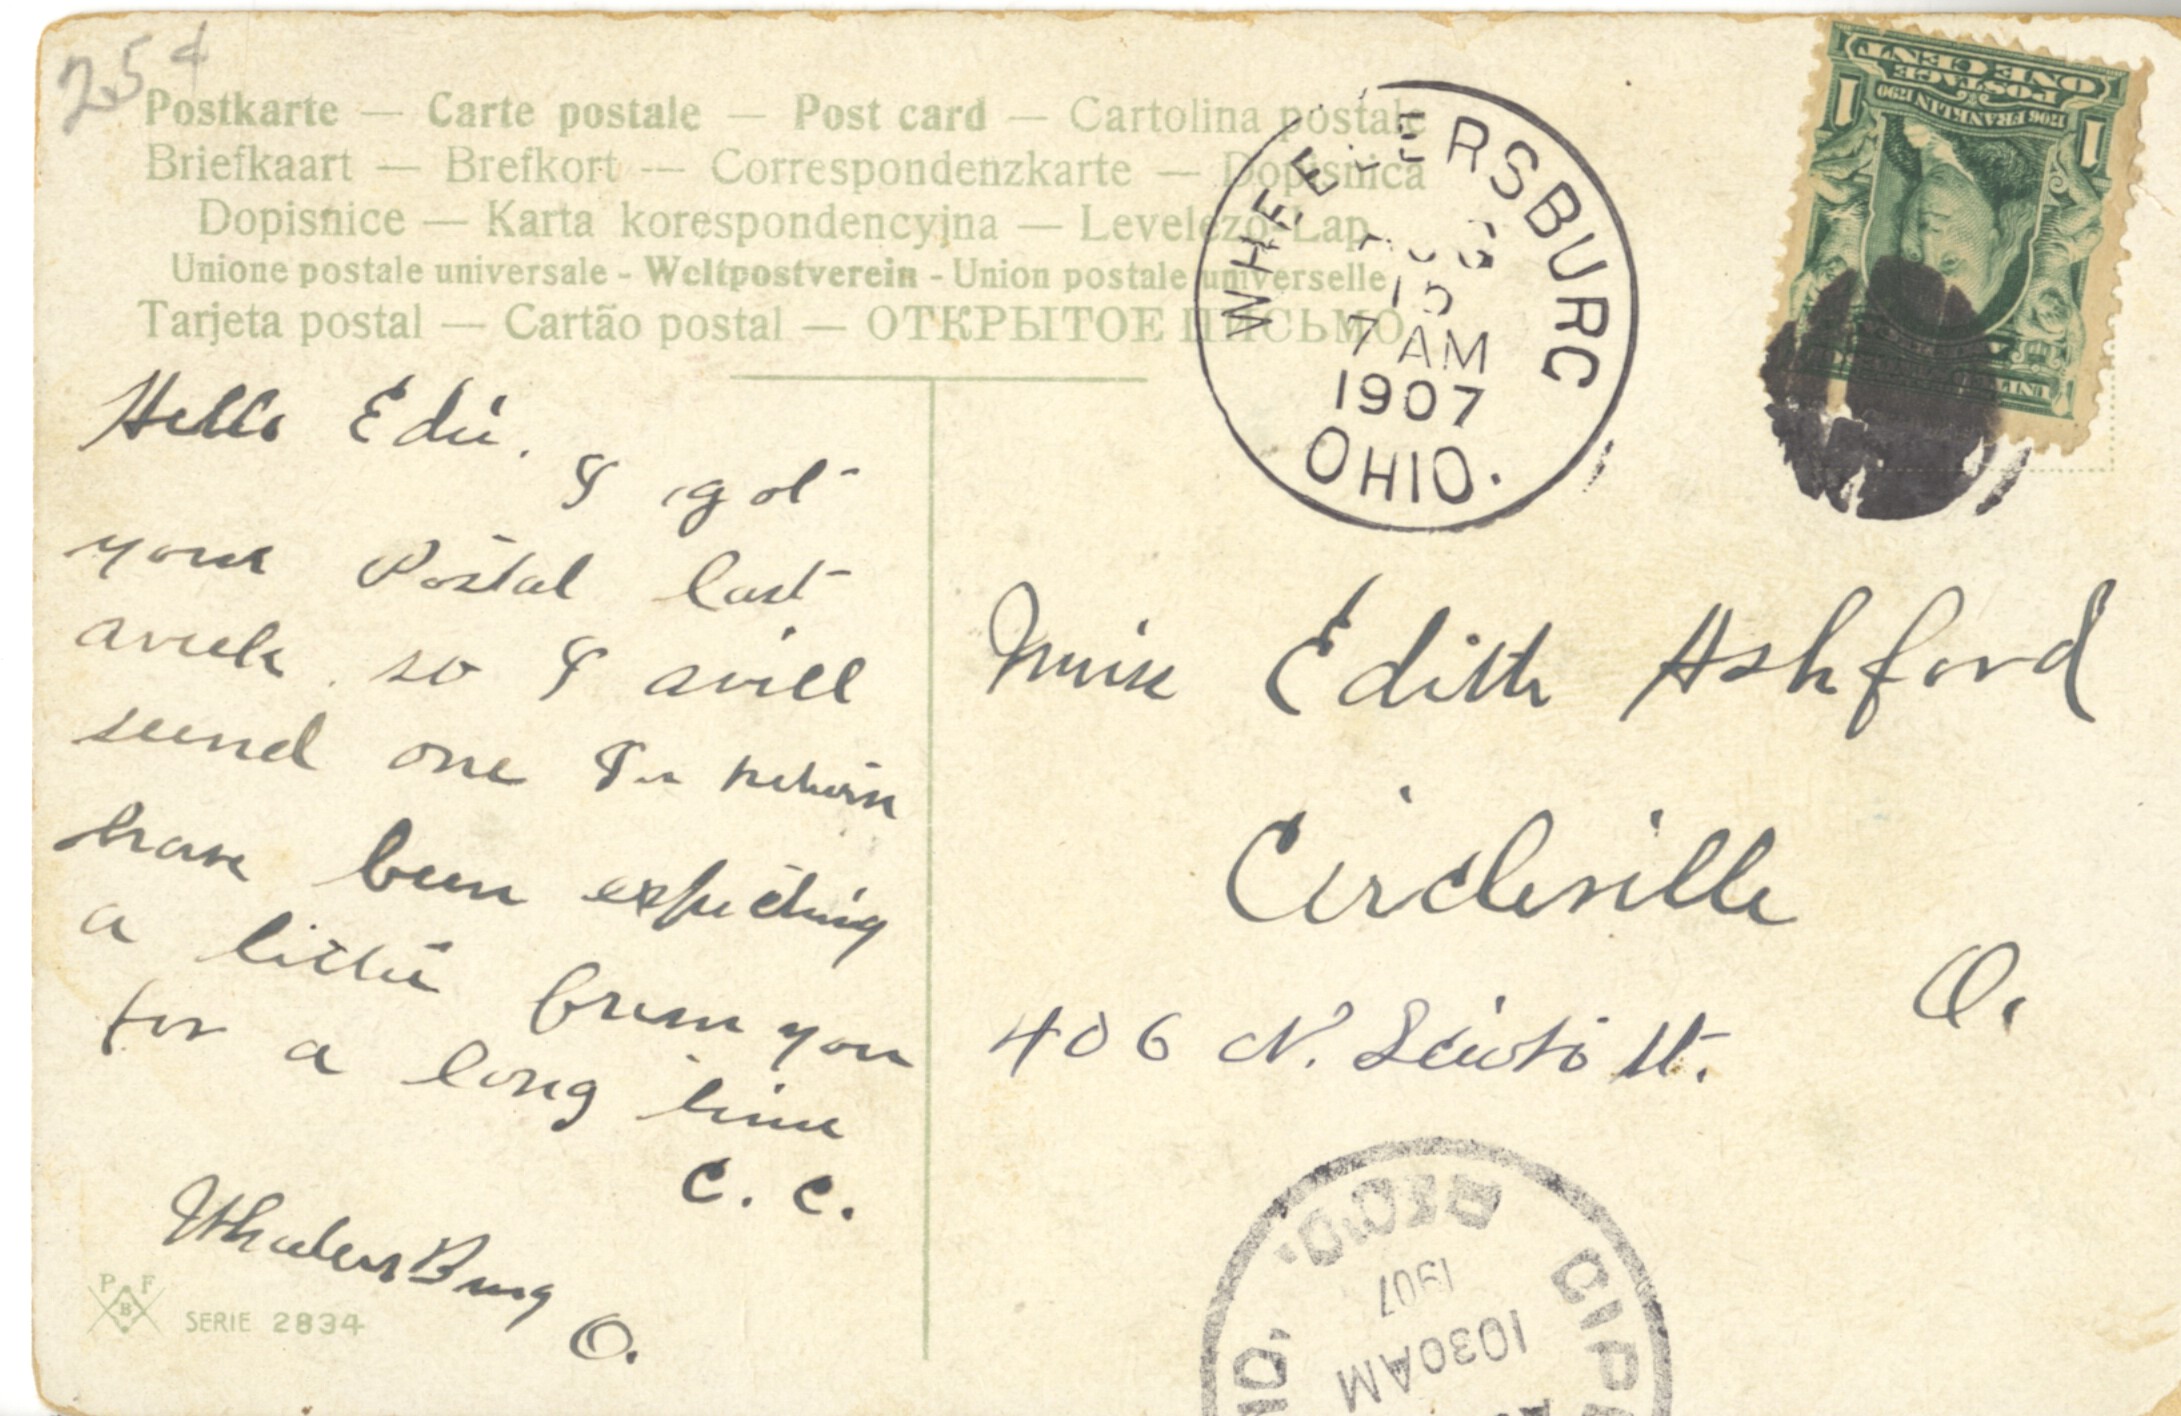 25¢
Postkarte — Carte postale — Post card — Cartolina postale
Briefkaart — Brefkort — Correspondenzkarte — Dopisnica
Dopisnice — Karta korespondencyjna — Levelező-Lap
Unione postale universale - Weltpostverein - Union postale universelle
Tarjeta postal — Cartão postal — ОТКРЫТОЕ ПИСЬМО
WHEELERSBURG
AUG
15
7 AM
1907
OHIO.
1706 FRANKLIN 1790
POSTAGE
ONE CENT
1 1
Hello Edie.
I got
your Postal last
week so I will
seend one In return
have been expecting
a little from you
for a long time
C. C.
Wheelers Burg
O.
Miss Edith Ashford
Circleville
O.
406 N. Scioto St.
P F
B
SERIE 2834
REC'D.
1907
1030AM
CIR
O.